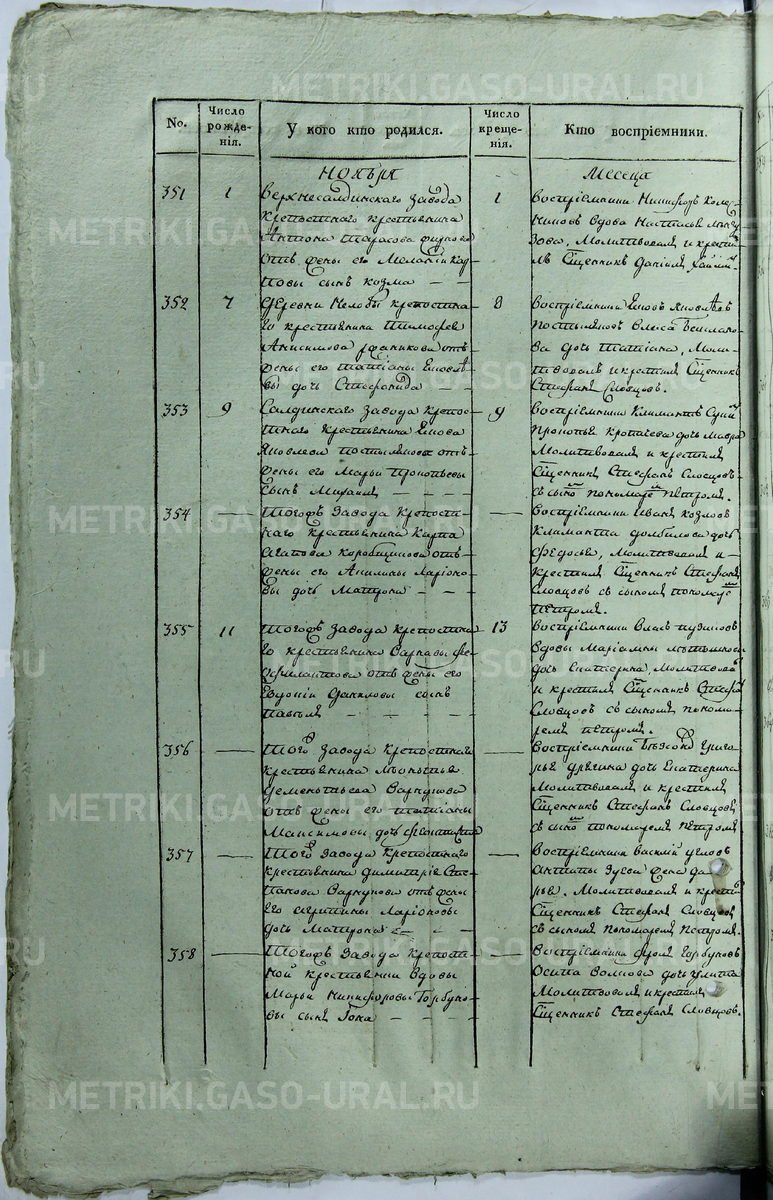 METRIKI.GASO-URAL.RU
No.
Число рожденія.
У кого кто родился.
Число крещенія.
Кто воспріемники.
Ноября
Месеца
351
1
Верхнесалдинскаго Завода
крепостнаго крестьянина
Антона Тарасова
отъ жены его Меланіи Кар-
повы сынъ козма
1
Воспріемники Никифоръ Колес-
никовъ вдова Настасья
Молитвовалъ и крести-
лъ Сщенникъ Даніилъ
352
7
деревни Нелобы крепостна-
го крестьянина Тимофея
Анисимова отъ
жены его татіаны
вы дочь Стефанида
8
Воспріемники Яковлевъ
Постыляковъ Власа
ва дочь татіана, Моли-
твовалъ и крестилъ Сщенникъ
Стефанъ Словцовъ.
353
9
Салдинскаго Завода крепос-
тнаго крестьянина
Яковлева постылякова отъ
жены его Марьи Прокопьевы
сынъ Михаилъ
9
Воспріемники Климантъ
Прокопья дочь мавра
Молитвовалъ и крестилъ
Сщенникъ Стефанъ Словцовъ
съ сыно пономаре Петромъ.
354
Тогожъ Завода крепост-
наго крестьянина Карпа
Агапова отъ
жены его Акилины Ларіоно-
вы дочь Матрона
Воспріемники Иванъ козловъ
Климанта долбилова дочь
Федосья, Молитвовалъ и
крестилъ Сщенникъ Стефанъ
Словцовъ съ сыномъ пономаре
Петромъ.
355
11
Тогожъ Завода крепостна-
го крестьянина Варнавы Фе-
офилактова отъ жены его
Евдокіи Даниловы сынъ
Павелъ
13
Воспріемники Власъ
Вдовы Маріамны
дочь Екатерина, Молитвова
и крестилъ Сщенникъ Стефа
Словцовъ съ сыномъ понома-
ремъ Петромъ.
356
Того Завода крепостнаго
крестьянина
Дементьева
отъ жены его татіаны
Максимовы дочь
Воспріемники Григо-
рья дрягина дочь Екатерина
Молитвовалъ и крестилъ
Сщенникъ Стефанъ Словцовъ
съ сыно пономаремъ Петромъ
357
Того Завода крепостнаго
крестьянина димитрія Сте-
панова отъ жены
Его Ларіоновы
дочь Матрона
Воспріемники василій угловъ
Антипы Зуева жена да-
рья. Молитвовалъ и крести
Сщенникъ Стефанъ Словцовъ
съ сыномъ пономаремъ Петромъ.
358
Тогожъ Завода крепост-
ной крестьянки вдовы
Марьи Никифоровы Горбуно-
вы сынъ Іона
Воспріемники Фролъ Горбуновъ
Осипа Волкова дочь улита
Молитвовалъ и крестилъ
Сщенникъ Стефанъ Словцовъ.
METRIKI.GASO-URAL.RU